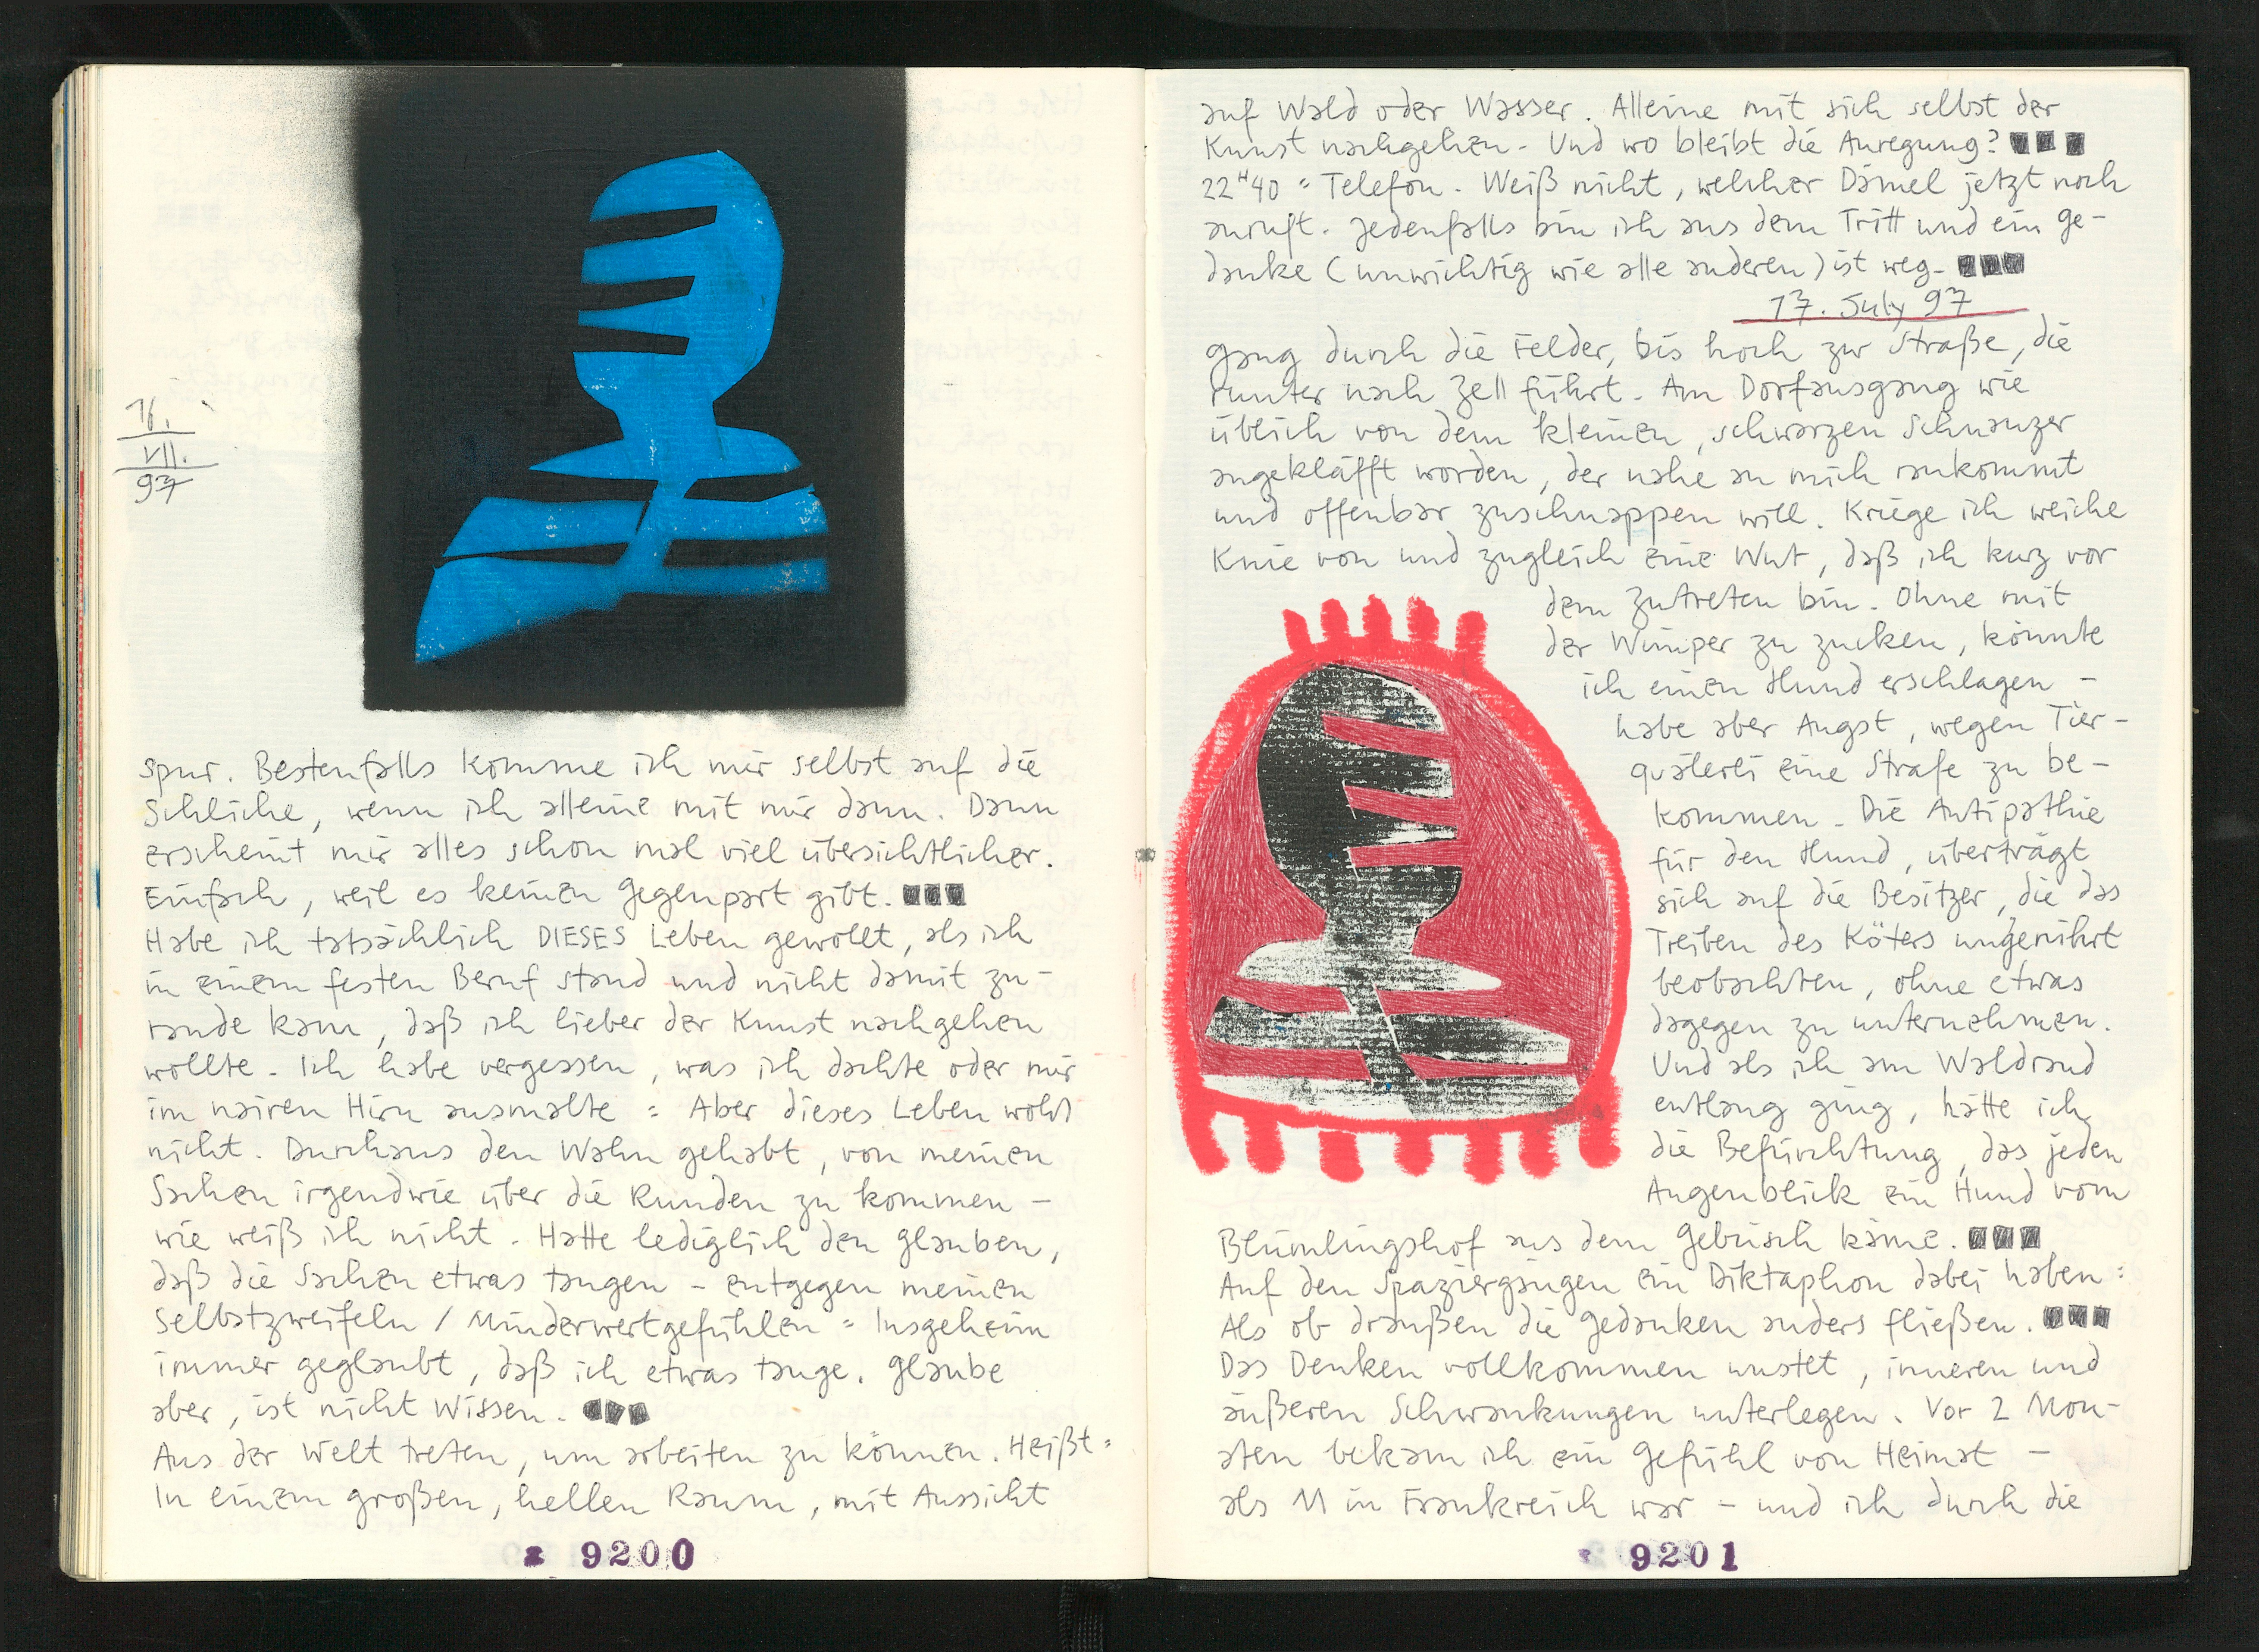 16.
VII.
97
spur. Bestenfalls komme ich mir selbst auf die
Schliche, wenn ich alleine mit mir dann. Dann
erscheint mir alles schon mal viel übersichtlicher.
Einfach, weil es keinen Gegenpart gibt.
Habe ich tatsächlich DIESES Leben gewollt, als ich
in einem festen Beruf stand und nicht damit zu-
rande kam, daß ich lieber der Kunst nachgehen
wollte. Ich habe vergessen, was ich dachte oder mir
im naiven Hirn ausmalte = Aber dieses Leben wohl
nicht. Durchaus den Wahn gehabt, von meinen
Sachen irgendwie über die Runden zu kommen –
wie weiß ich nicht. Hatte lediglich den Glauben,
daß die Sachen etwas taugen – entgegen meinen
Selbstzweifeln / Minderwertgefühlen = Insgeheim
immer geglaubt, daß ich etwas tauge. Glaube
aber, ist nicht Wissen.
Aus der Welt treten, um arbeiten zu können. Heißt =
In einem großen, hellen Raum, mit Aussicht
9200
auf Wald oder Wasser. Alleine mit sich selbst der
Kunst nachgehen. Und wo bleibt die Anregung?
22H40 = Telefon. Weiß nicht, welcher Dämel jetzt noch
anruft. Jedenfalls bin ich aus dem Tritt und ein Ge-
danke (unwichtig wie alle anderen) ist weg.
17. July 97
Gang durch die Felder, bis hoch zur Straße, die
runter nach Zell führt. Am Dorfausgang wie
üblich von dem kleinen, schwarzen Schnauzer
angekläfft worden, der nahe an mich rankommt
und offenbar zuschnappen will. Kriege ich weiche
Knie von und zugleich eine Wut, daß ich kurz vor
dem Zutreten bin. Ohne mit
der Wimper zu zucken, könnte
ich einen Hund erschlagen –
habe aber Angst, wegen Tier-
quälerei eine Strafe zu be-
kommen. Die Antipathie
für den Hund, überträgt
sich auf die Besitzer, die das
Treiben des Köters ungerührt
beobachten, ohne etwas
dagegen zu unternehmen.
Und als ich am Waldrand
entlang ging, hatte ich
die Befürchtung, das jeden
Augenblick ein Hund vom
Blümlingshof aus dem Gebüsch käme.
Auf den Spaziergängen ein Diktaphon dabei haben =
Als ob draußen die Gedanken anders fließen.
Das Denken vollkommen unstet, inneren und
äußeren Schwankungen unterlegen. Vor 2 Mon-
aten bekam ich ein Gefühl von Heimat –
als M in Frankreich war – und ich durch die
9201